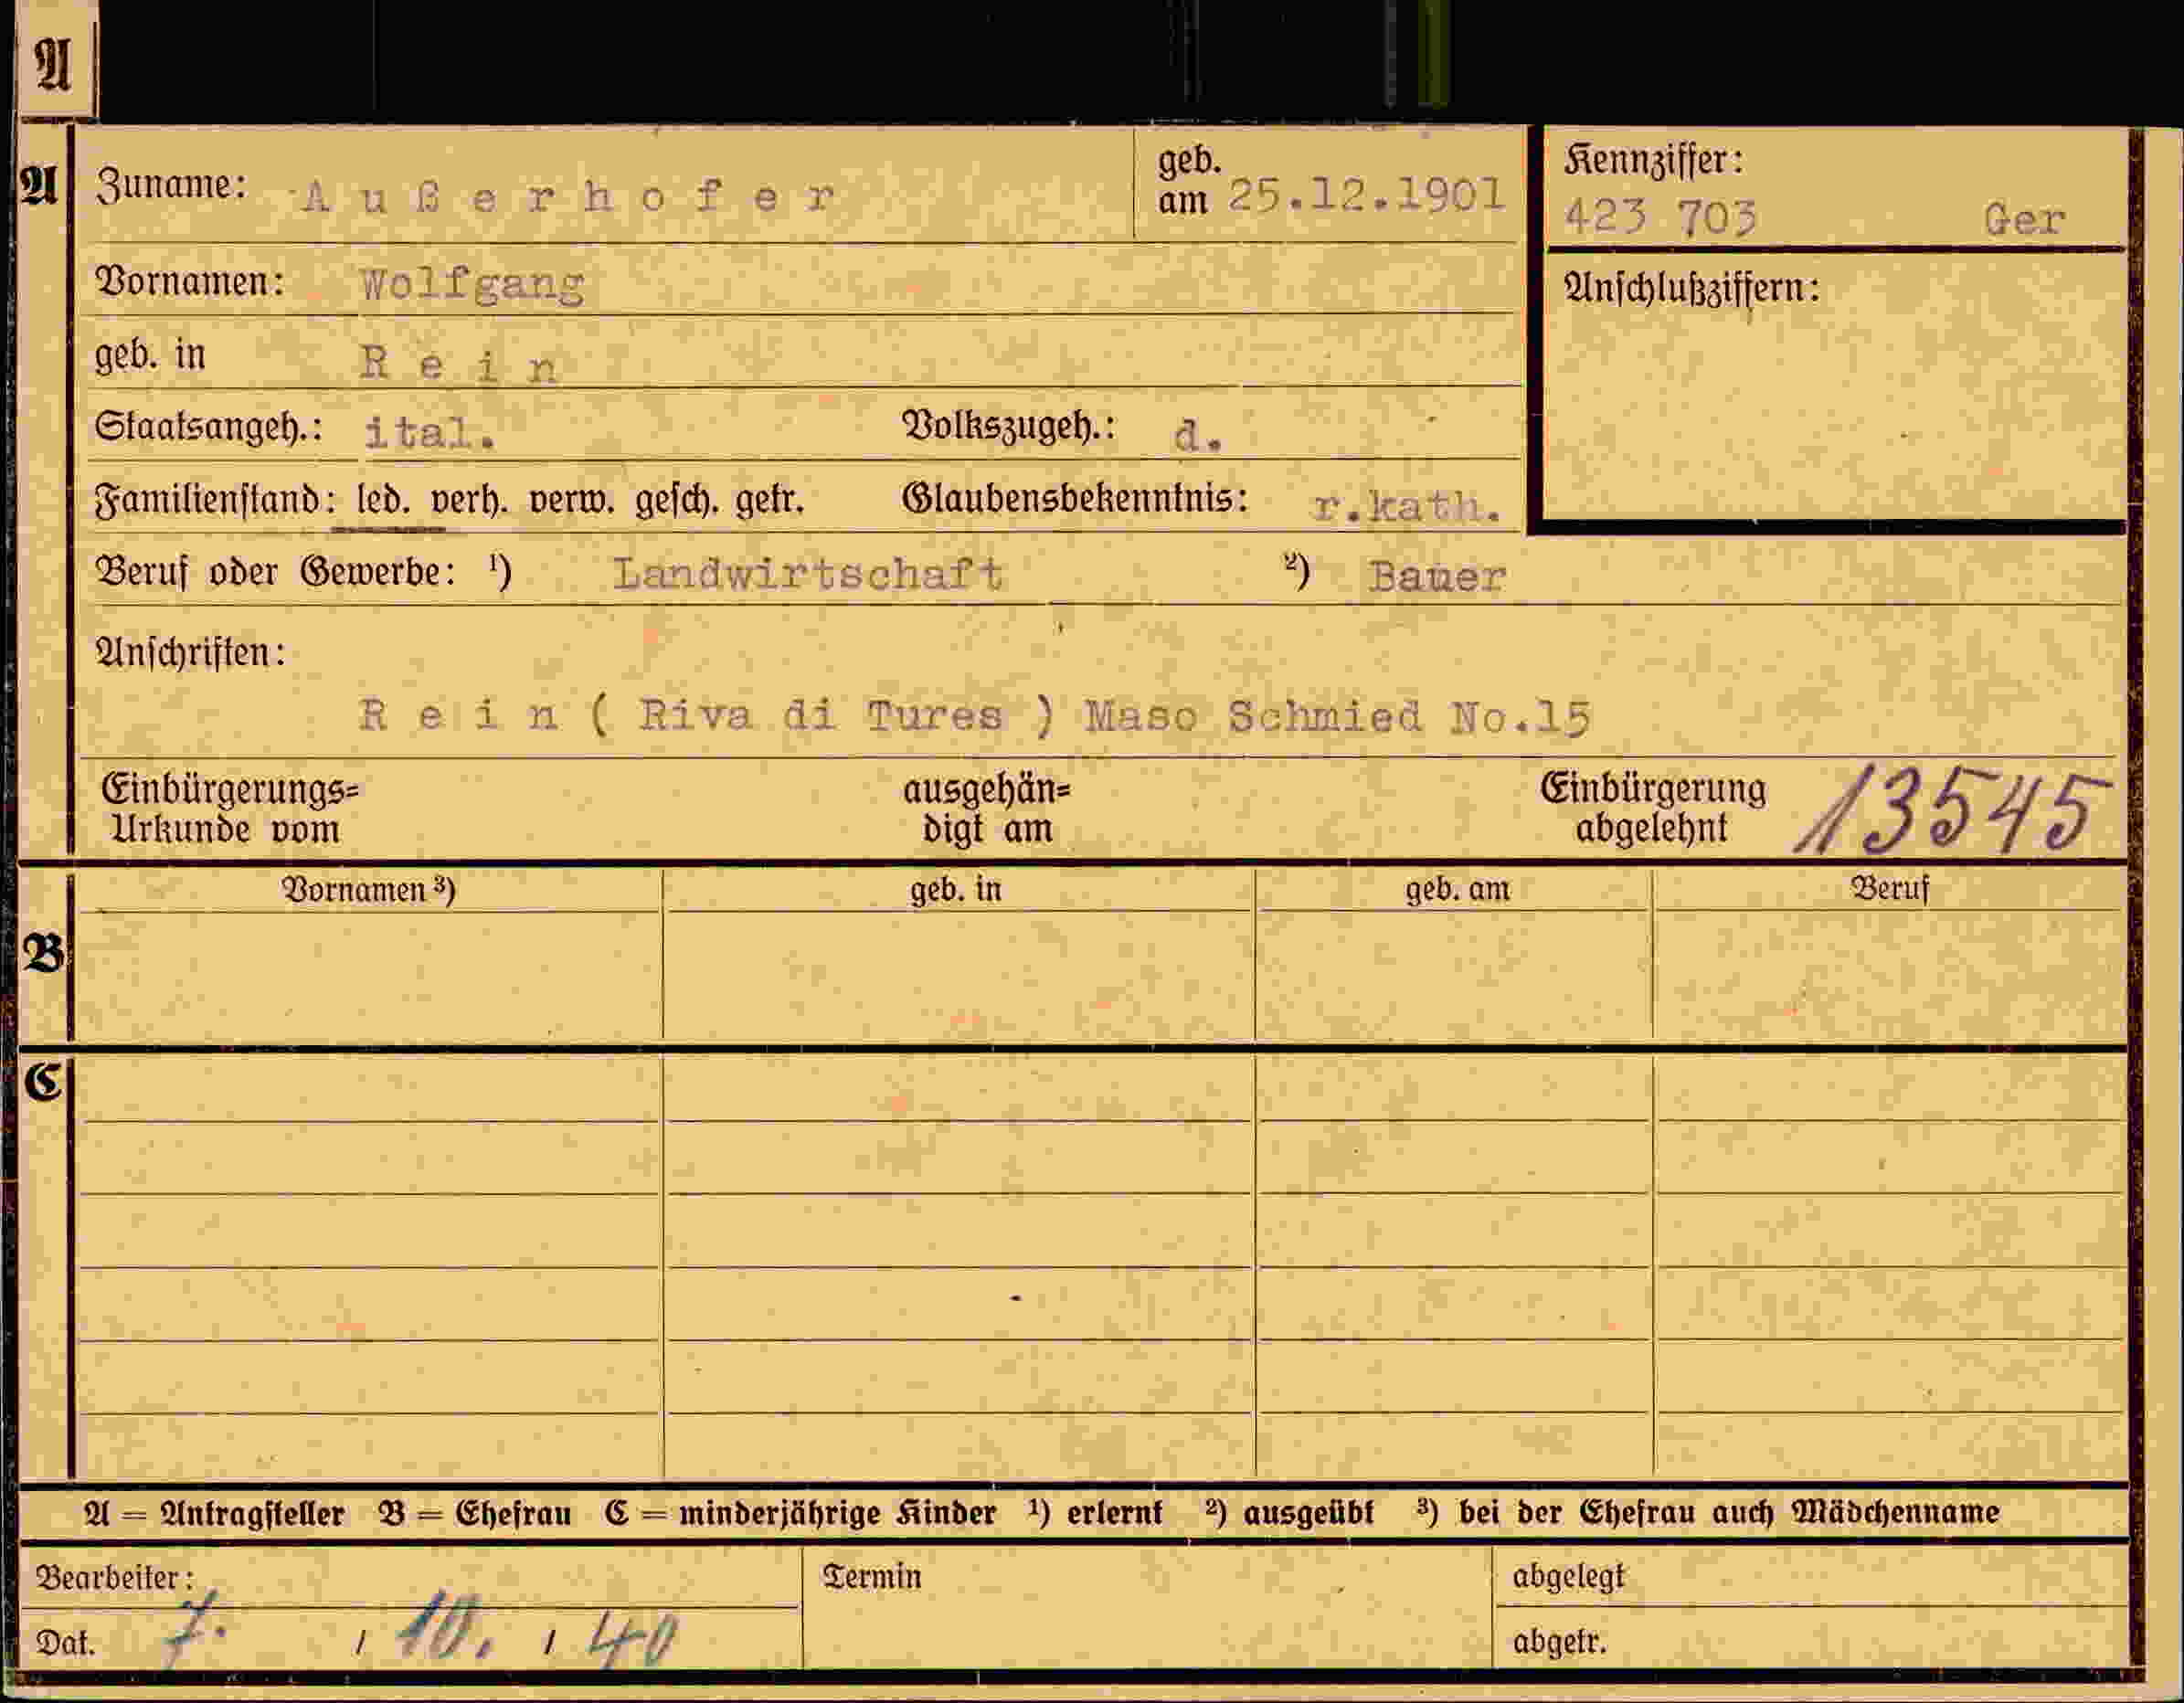 A
A Zuname: Außerhofer geb. am 25.12.1901 Kennziffer:
423 703 Ger
Vornamen: Wolfgang Anschlußziffern:
geb. in Rein
Staatsangeh.: ital. Volkszugeh.: d.
Familienstand: led. verh. verw. gesch. getr. Glaubensbekenntnis: r.kath.
Beruf oder Gewerbe: ¹) Landwirtschaft ²) Bauer
Anschriften:
Rein ( Riva di Tures ) Maso Schmied No.15
Einbürgerungs= ausgehän= Einbürgerung 13545
Urkunde vom digt am abgelehnt
Vornamen ³) geb. in geb. am Beruf
B
C
A = Antragsteller B = Ehefrau C = minderjährige Kinder ¹) erlernt ²) ausgeübt ³) bei der Ehefrau auch Mädchenname
Bearbeiter: Termin abgelegt
Dat. 7. / 10. / 40 abgetr.